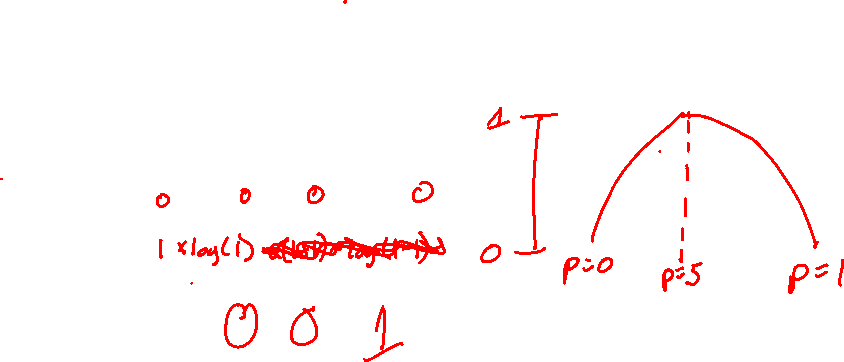 0 0 0 0
1 × log(1)
0 0 1
1
0
p=0 p=5 p=1